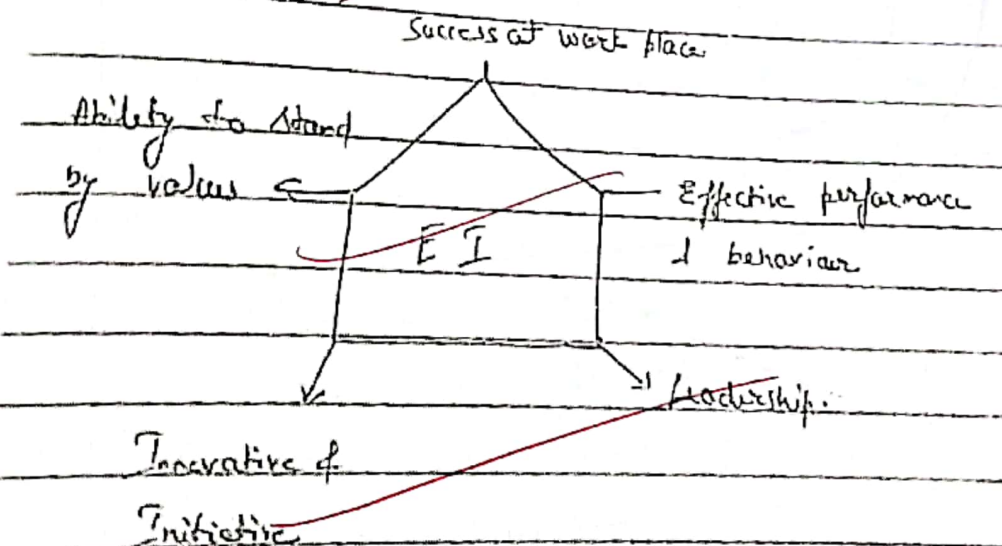 Success at work place
Ability to stand
by values
Effective performance
& behaviour
E I
Leadership.
Innovative &
Initiative